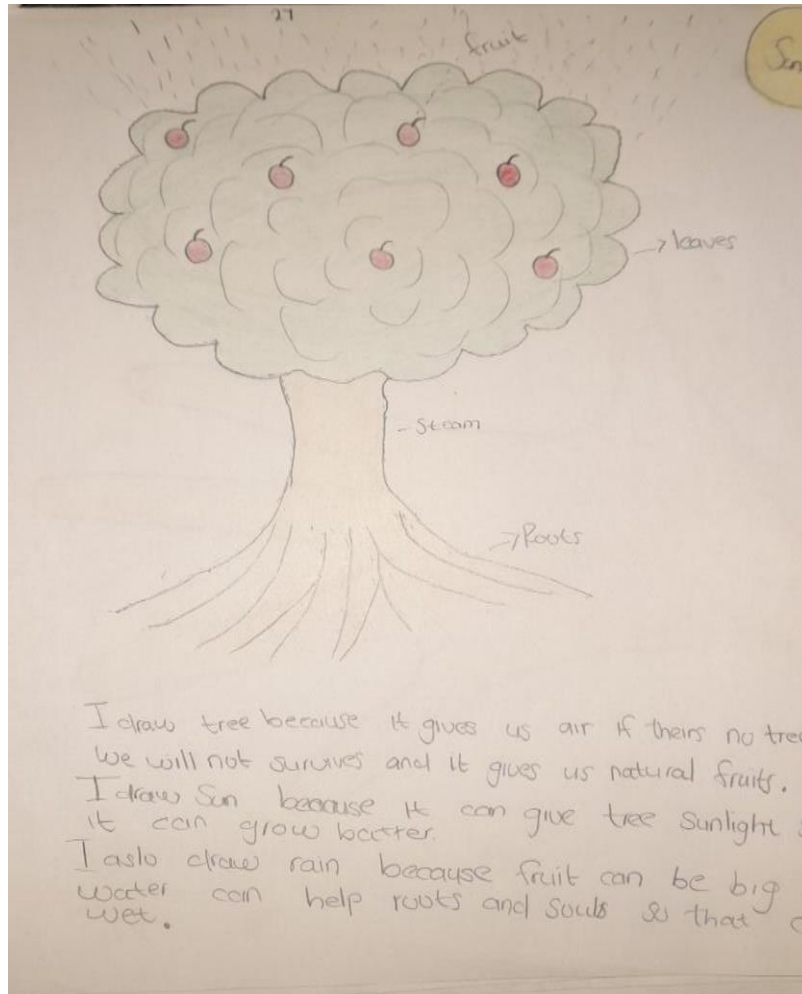 27
fruit
Sun
leaves
Steam
Roots
I draw tree because it gives us air if theirs no tree
we will not survives and it gives us natural fruits.
I draw Sun because it can give tree sunlight
it can grow batter.
I aslo draw rain because fruit can be big
water can help roots and souls so that
wet.